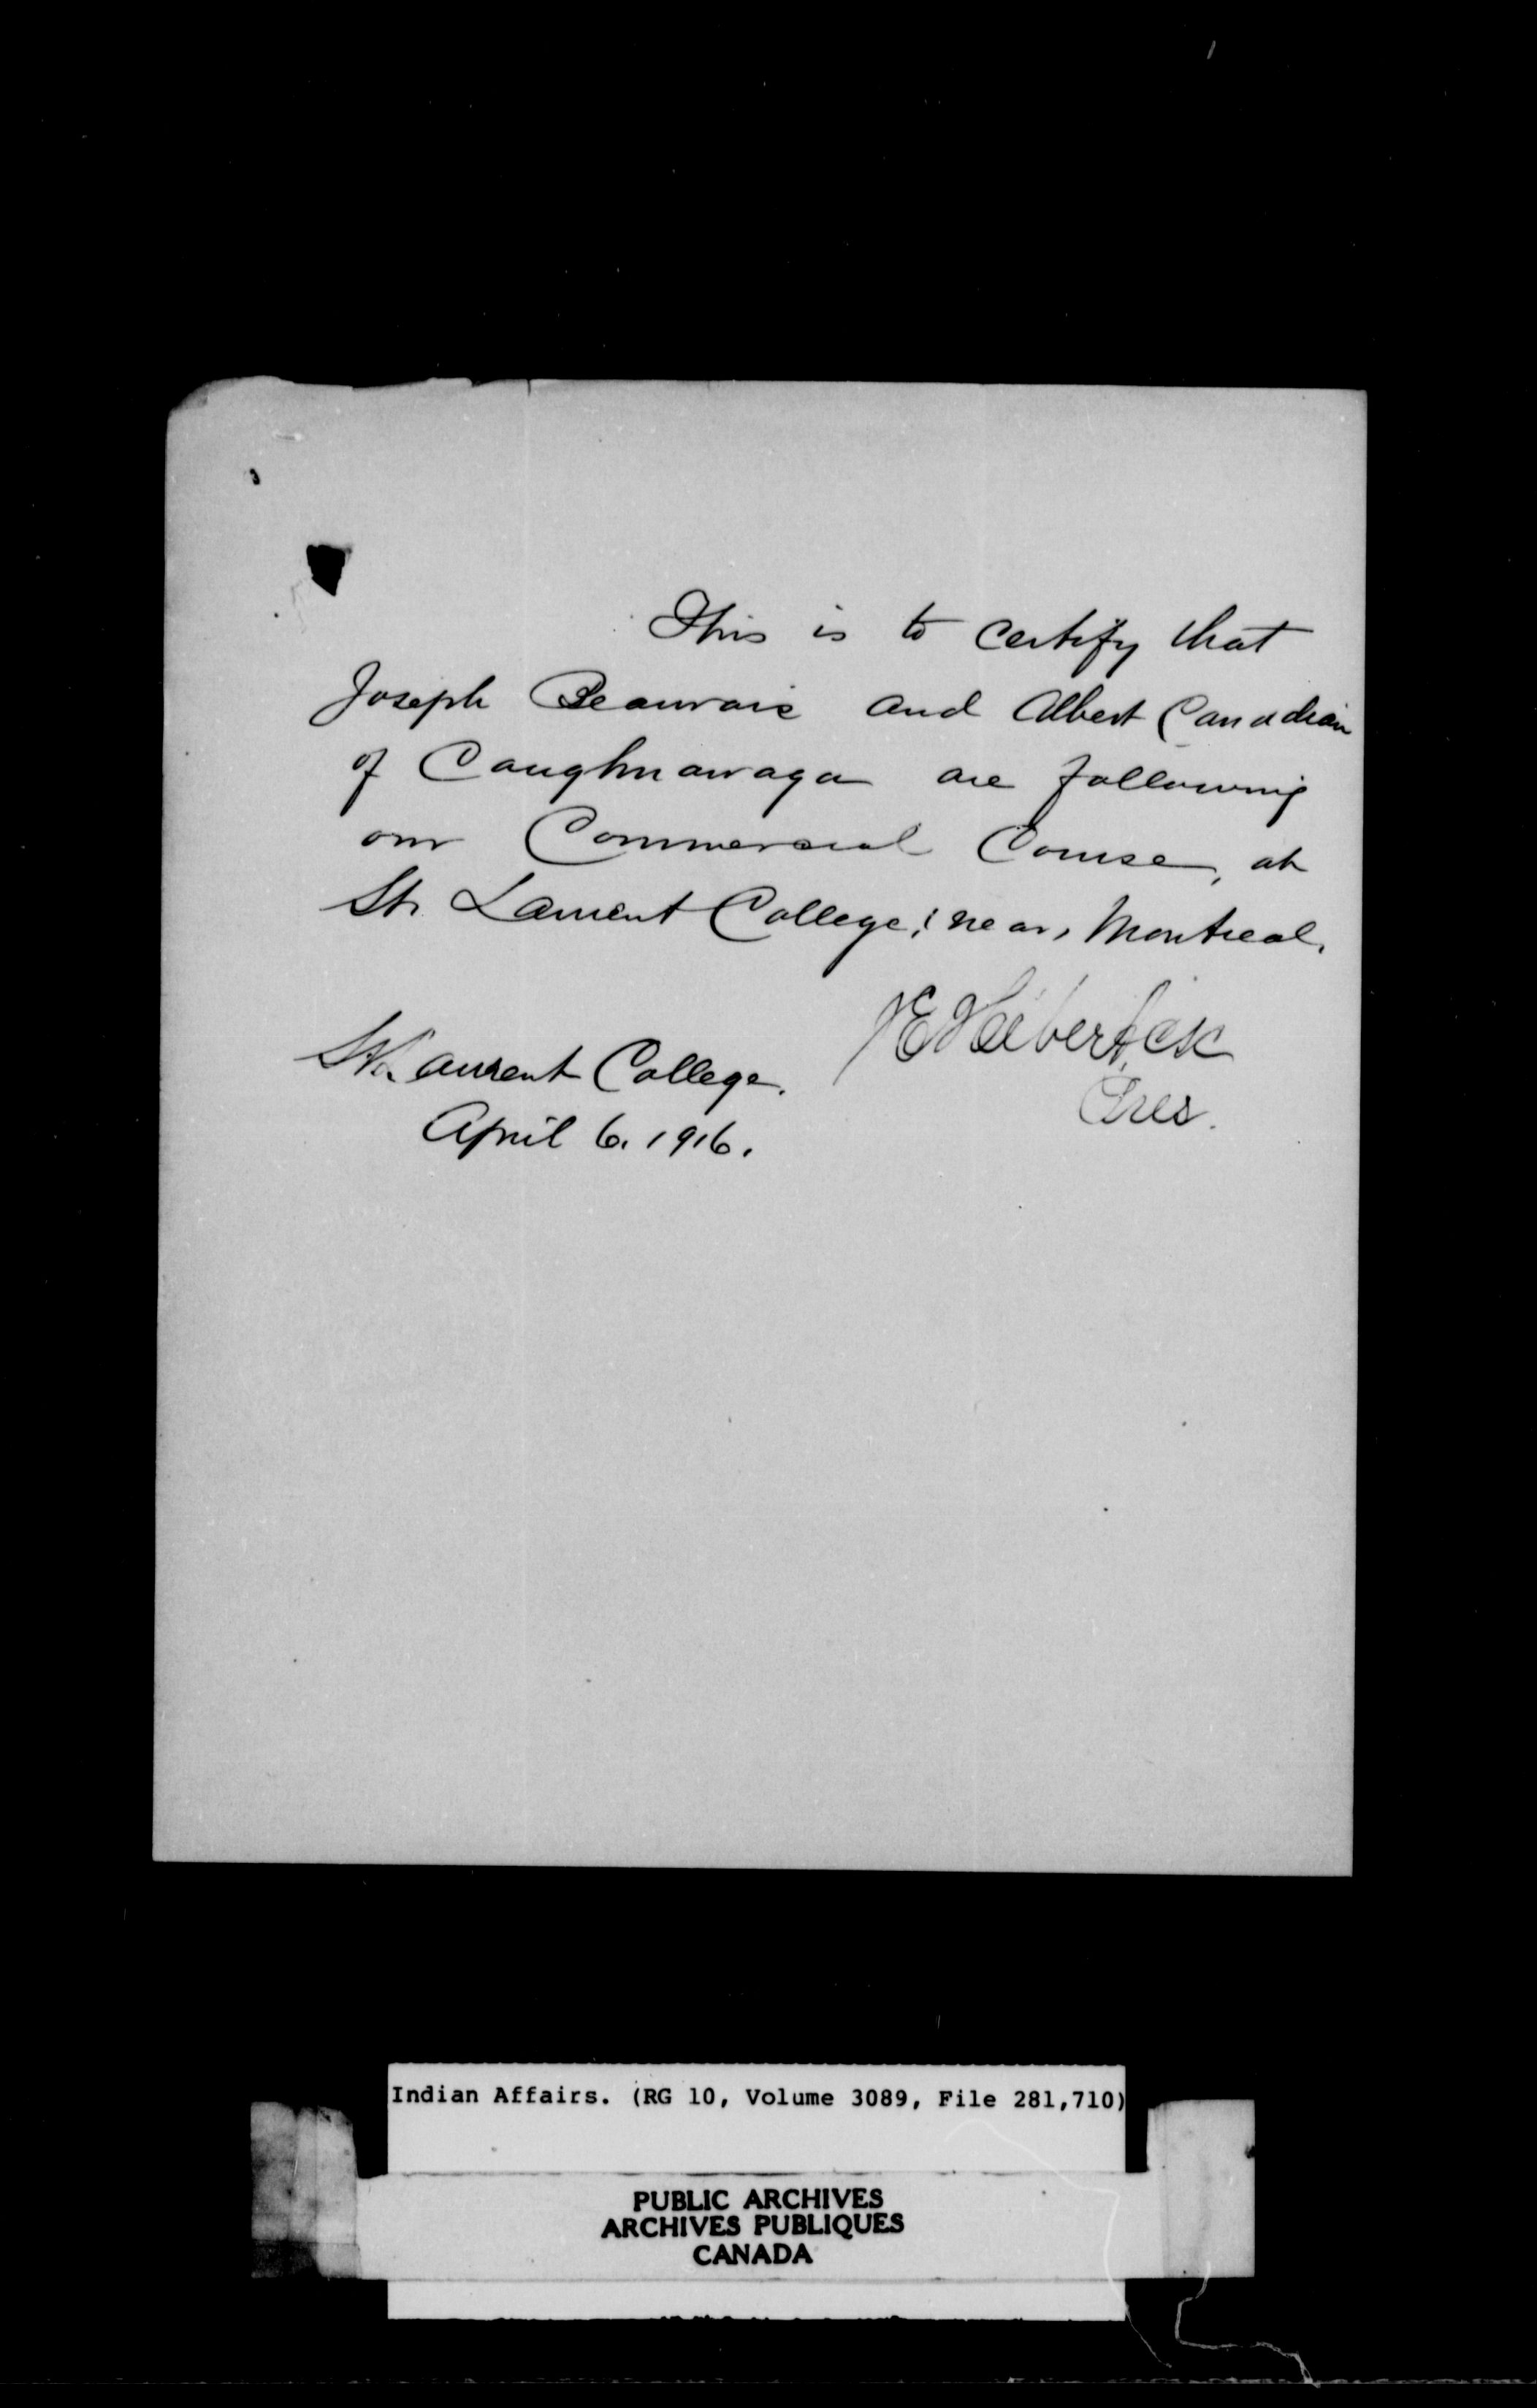 This is to certify that
Joseph Beauvais and Albert Canadian
of Caughnawaga are following
our Commercial Course, at
St. Laurent College, near, Montreal.
St. Laurent College.
April 6. 1916.
Hébert, csc
Pres.
Indian Affairs. (RG 10, Volume 3089, File 281,710)
PUBLIC ARCHIVES
ARCHIVES PUBLIQUES
CANADA